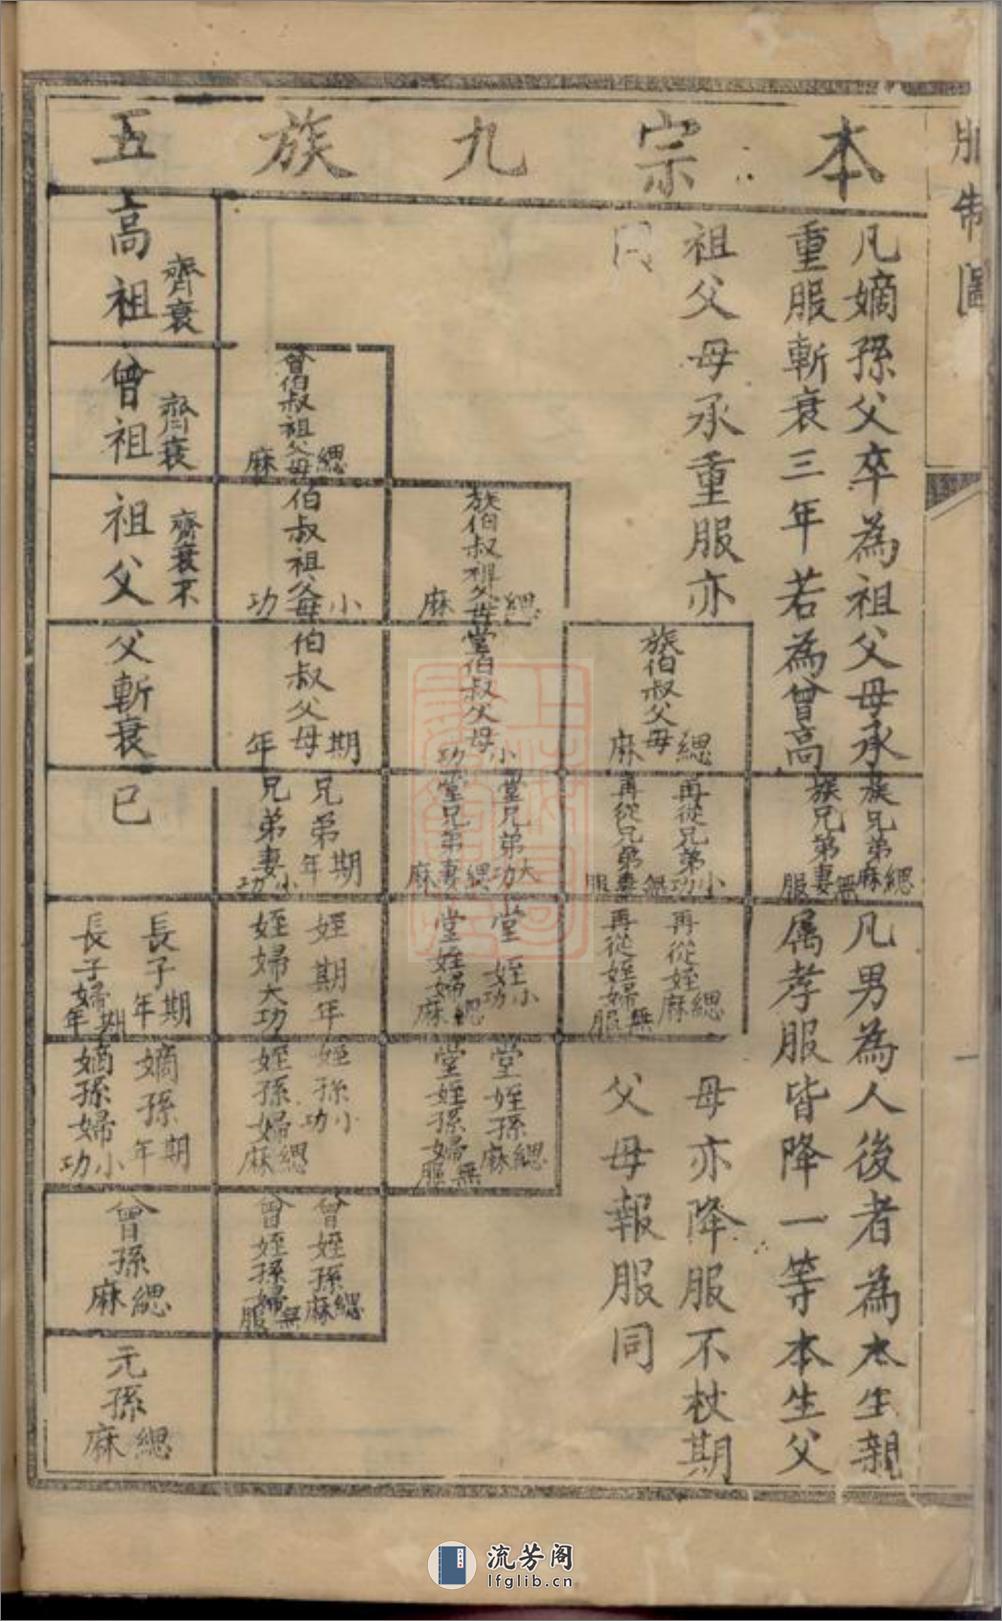 服制圖
本宗九族五
凡嫡孫父卒為祖父母承
重服斬衰三年若為曾高
祖父母承重服亦
同
族伯叔父母緦麻
族兄弟緦麻
族兄弟妻無服
凡男為人後者為本生親
属孝服皆降一等本生父
母亦降服不杖期
父母報服同
再從兄弟小功
再從兄弟妻無服
再從姪緦麻
再從姪婦無服
族伯叔祖父母緦麻
堂伯叔父母小功
堂兄弟大功
堂兄弟妻緦麻
堂姪小功
堂姪婦緦麻
堂姪孫緦麻
堂姪孫婦無服
曾伯叔祖父母緦麻
伯叔祖父母小功
伯叔父母期年
兄弟期年
兄弟妻小功
姪期年
姪婦大功
姪孫小功
姪孫婦緦麻
曾姪孫緦麻
曾姪孫婦無服
高祖齊衰
曾祖齊衰
祖父齊衰不
父斬衰
已
長子期年
長子婦期年
嫡孫期年
嫡孫婦小功
曾孫緦麻
元孫緦麻
流芳阁
lfglib.cn